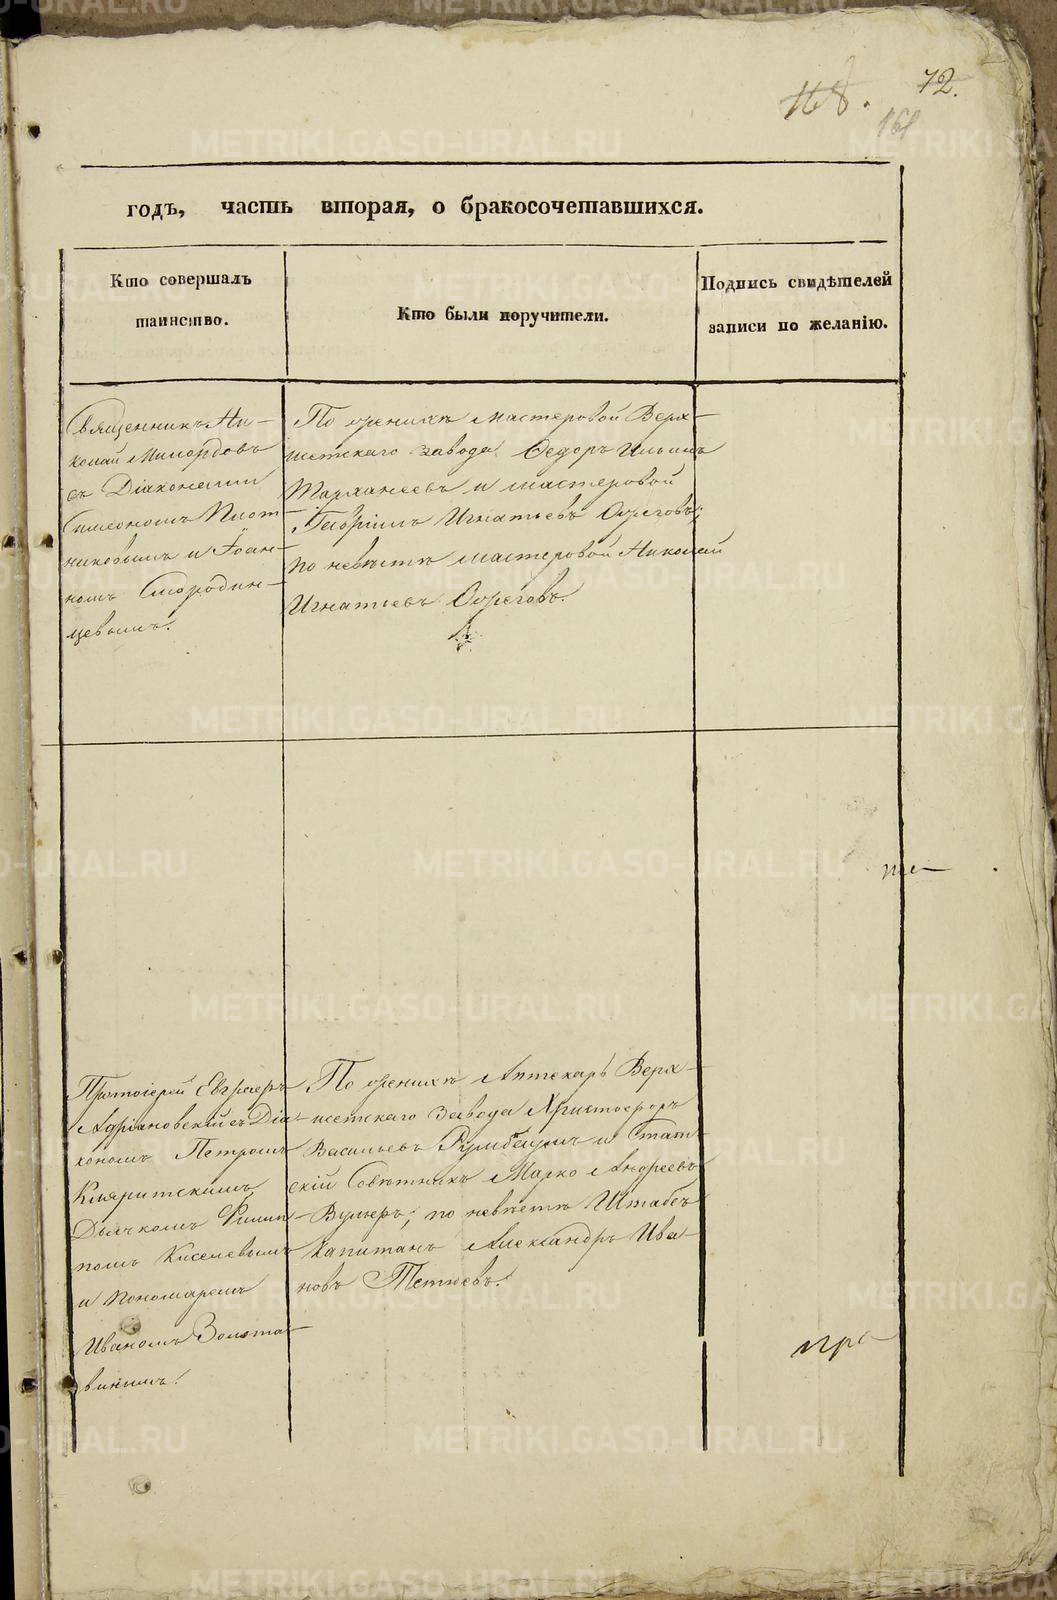 168. 72.
161
годъ, часть вторая, о бракосочетавшихся.
Кто совершалъ
таинство.
Кто были поручители.
Подпись свидѣтелей
записи по желанію.
Священникъ Ни-
колай Милордовъ
съ Діаконами
Симеономъ Плот-
никовымъ и Іоан-
номъ Смородин-
цевымъ.
По женихѣ мастеровой Верх-
исетскаго завода Ѳедоръ Ильинъ
и мастеровой
Гавріилъ Игнатьевъ Ожеговъ;
по невѣстѣ мастеровой Николай
Игнатьевъ Ожеговъ.
те-
Протоіерей Евграфъ
Адріановскій съ Діа-
кономъ Петромъ
Дьячкомъ Филип-
помъ Киселевымъ
и Пономаремъ
Иваномъ Золота-
винымъ.
По женихѣ Аптекарь Верх-
исетскаго Завода Христофоръ
Васильевъ и Стат-
скій Совѣтникъ Марко Андреевъ
по невѣстѣ Штабсъ
Капитанъ Александръ Ива-
новъ Тетюевъ.
пра-
METRIKI.GASO-URAL.RU